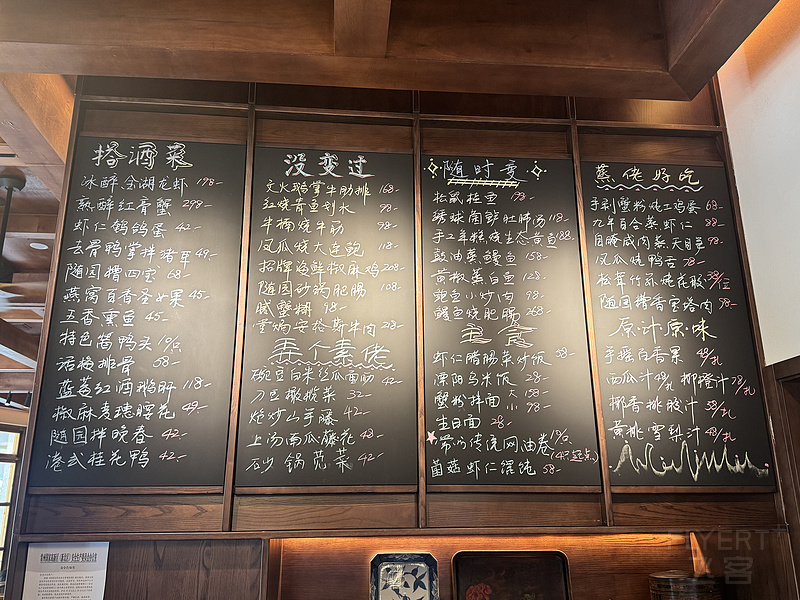 搭酒菜
冰醉金湖龙虾 198-
熟醉红膏蟹 298-
虾仁鸽鸽蛋 42-
去骨鸭掌拌猪耳 49-
随园糟四宝 68-
燕窝百香圣女果 45-
五香熏鱼 45-
特色酱鸭头 19/只
话梅排骨 58-
蓝莓红酒鹅肝 118-
椒麻麦穗腰花 49-
随园拌晚春 42-
港式桂花鸭 42-
没变过
文火鹅掌牛肋排 168-
红烧青鱼划水 98-
牛楠烧牛筋 98-
凤瓜烧大连鲍 118-
招牌海鲜椒麻鸡 208-
随园砂锅肥肠 108-
腻蟹糊 98-
雪焗安格斯牛肉 28-
弄个素佬
豌豆白米丝瓜面筋 42-
刀豆橄榄菜 32-
炝炒山芋藤 42-
上汤南瓜藤花 48-
砂锅苋菜 42-
随时变
松鼠桂鱼 198-
绣球菌鲜肚肺汤 118-
手工年糕烧生态黄鱼 188-
豉油蒸鳗鱼 158-
黄椒蒸白鱼 128-
鲍鱼小炒肉 98-
鳗鱼烧肥肠 268-
主食
虾仁腊肠菜炒饭 58-
溧阳乌米饭 28-
蟹粉拌面 大 158- 小 98-
生日面 28-
常州传统网油卷 19/只 (4只起点)
菌菇虾仁馄饨 58-
蒸佬好吃
手剥蟹粉炖土鸡蛋 68-
九年百合蒸虾仁 88-
自腌咸肉蒸天目笋 98-
凤瓜烧鸭舌 98-
松茸竹荪炖花胶 38/位
随园摆香宝塔肉 98-
原·汁原·味
手摇百香果 48/扎
西瓜汁 48/扎 柳橙汁 78/扎
椰香桃胶汁 58/扎
黄桃雪梨汁 48/扎
FLYERT
飞客